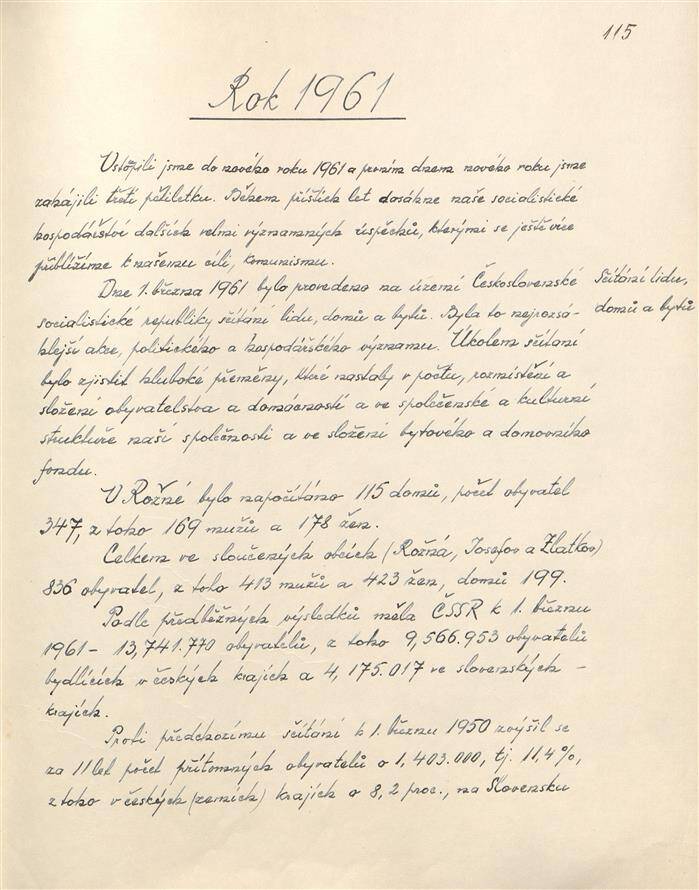 115
Rok 1961
Vstoupili jsme do nového roku 1961 a prvním dnem nového roku jsme
zahájili třetí pětiletku. Během příštích let dosáhne naše socialistické
hospodářství dalších velmi významných úspěchů, kterými se ještě více
přiblížíme k našemu cíli, komunismu.
Dne 1. března 1961 bylo provedeno na území Československé
Sčítání lidu,
socialistické republiky sčítání lidu, domů a bytů. Byla to nejrozsá-
domů a bytů
hlejší akce, politického a hospodářského významu. Úkolem sčítání
bylo zjistit hluboké přeměny, které nastaly v počtu, rozmístění a
složení obyvatelstva a domácností a ve společenske a kulturní
struktuře naší společnosti a ve složení bytového a domovního
fondu.
V Rožné bylo napočítáno 115 domů, počet obyvatel
347, z toho 169 mužů a 178 žen.
Celkem ve sloučených obcích (Rožná, Josefov a Zlatkov)
836 obyvatel, z toho 413 mužů a 423 žen, domů 199.
Podle předběžných výsledků měla ČSSR k 1. březnu
1961 - 13,741.770 obyvatelů, z toho 9,566.953 obyvatelů
bydlících v českých krajích a 4,175.017 ve slovenských -
krajích.
Proti předchozímu sčítání k 1. březnu 1950 zvýšil se
za 11 let počet přítomných obyvatelů o 1,403.000, tj. 11,4%,
z toho v českých (zemích) krajích o 8,2 proc., na Slovensku